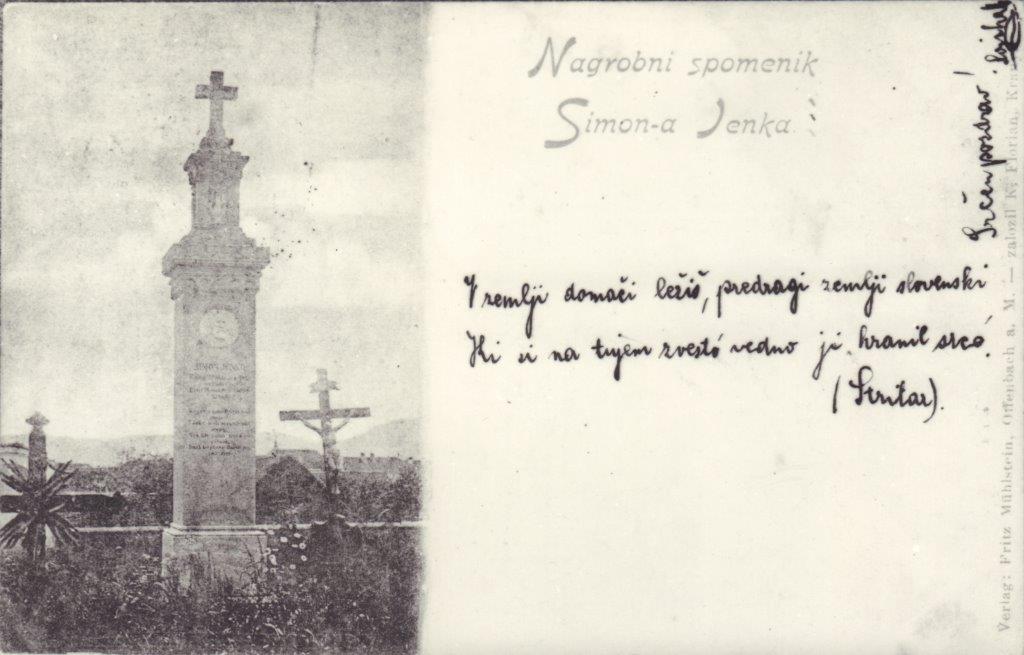 Nagrobni spomenik
Simon-a Jenka.
V zemlji domači ležiš, predragi zemlji slovenski
Ki si na tujem zvestó vedno ji hranil srcé.
(Stritar).
Srčen pozdrav!
Verlag: Fritz Mühlstein, Offenbach a. M. — založil K. Florian,
SIMON JENKO